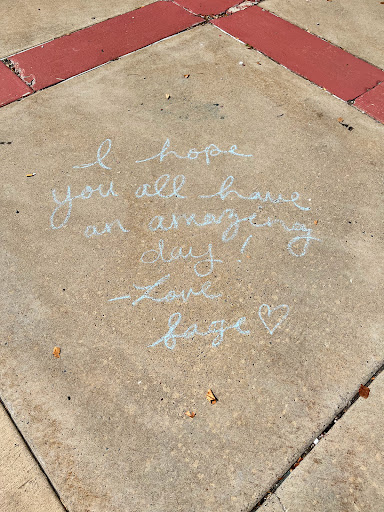 I hope
you all have
an amazing
day!
-Love
Sage♡